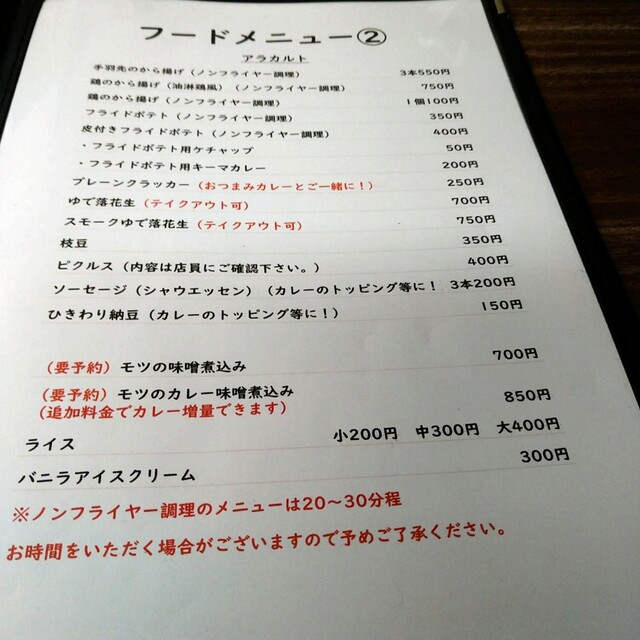 フードメニュー②
アラカルト
手羽先のから揚げ（ノンフライヤー調理） 3本550円
鶏のから揚げ（油淋鶏風）（ノンフライヤー調理） 750円
鶏のから揚げ（ノンフライヤー調理） 1個100円
フライドポテト（ノンフライヤー調理） 350円
皮付きフライドポテト（ノンフライヤー調理） 400円
・フライドポテト用ケチャップ 50円
・フライドポテト用キーマカレー 200円
プレーンクラッカー（おつまみカレーとご一緒に！） 250円
ゆで落花生（テイクアウト可） 700円
スモークゆで落花生（テイクアウト可） 750円
枝豆 350円
ピクルス（内容は店員にご確認下さい。） 400円
ソーセージ（シャウエッセン）（カレーのトッピング等に！ 3本200円
ひきわり納豆（カレーのトッピング等に！） 150円
（要予約）モツの味噌煮込み 700円
（要予約）モツのカレー味噌煮込み 850円
（追加料金でカレー増量できます）
ライス 小200円 中300円 大400円
バニラアイスクリーム 300円
※ノンフライヤー調理のメニューは20～30分程
お時間をいただく場合がございますので予めご了承ください。